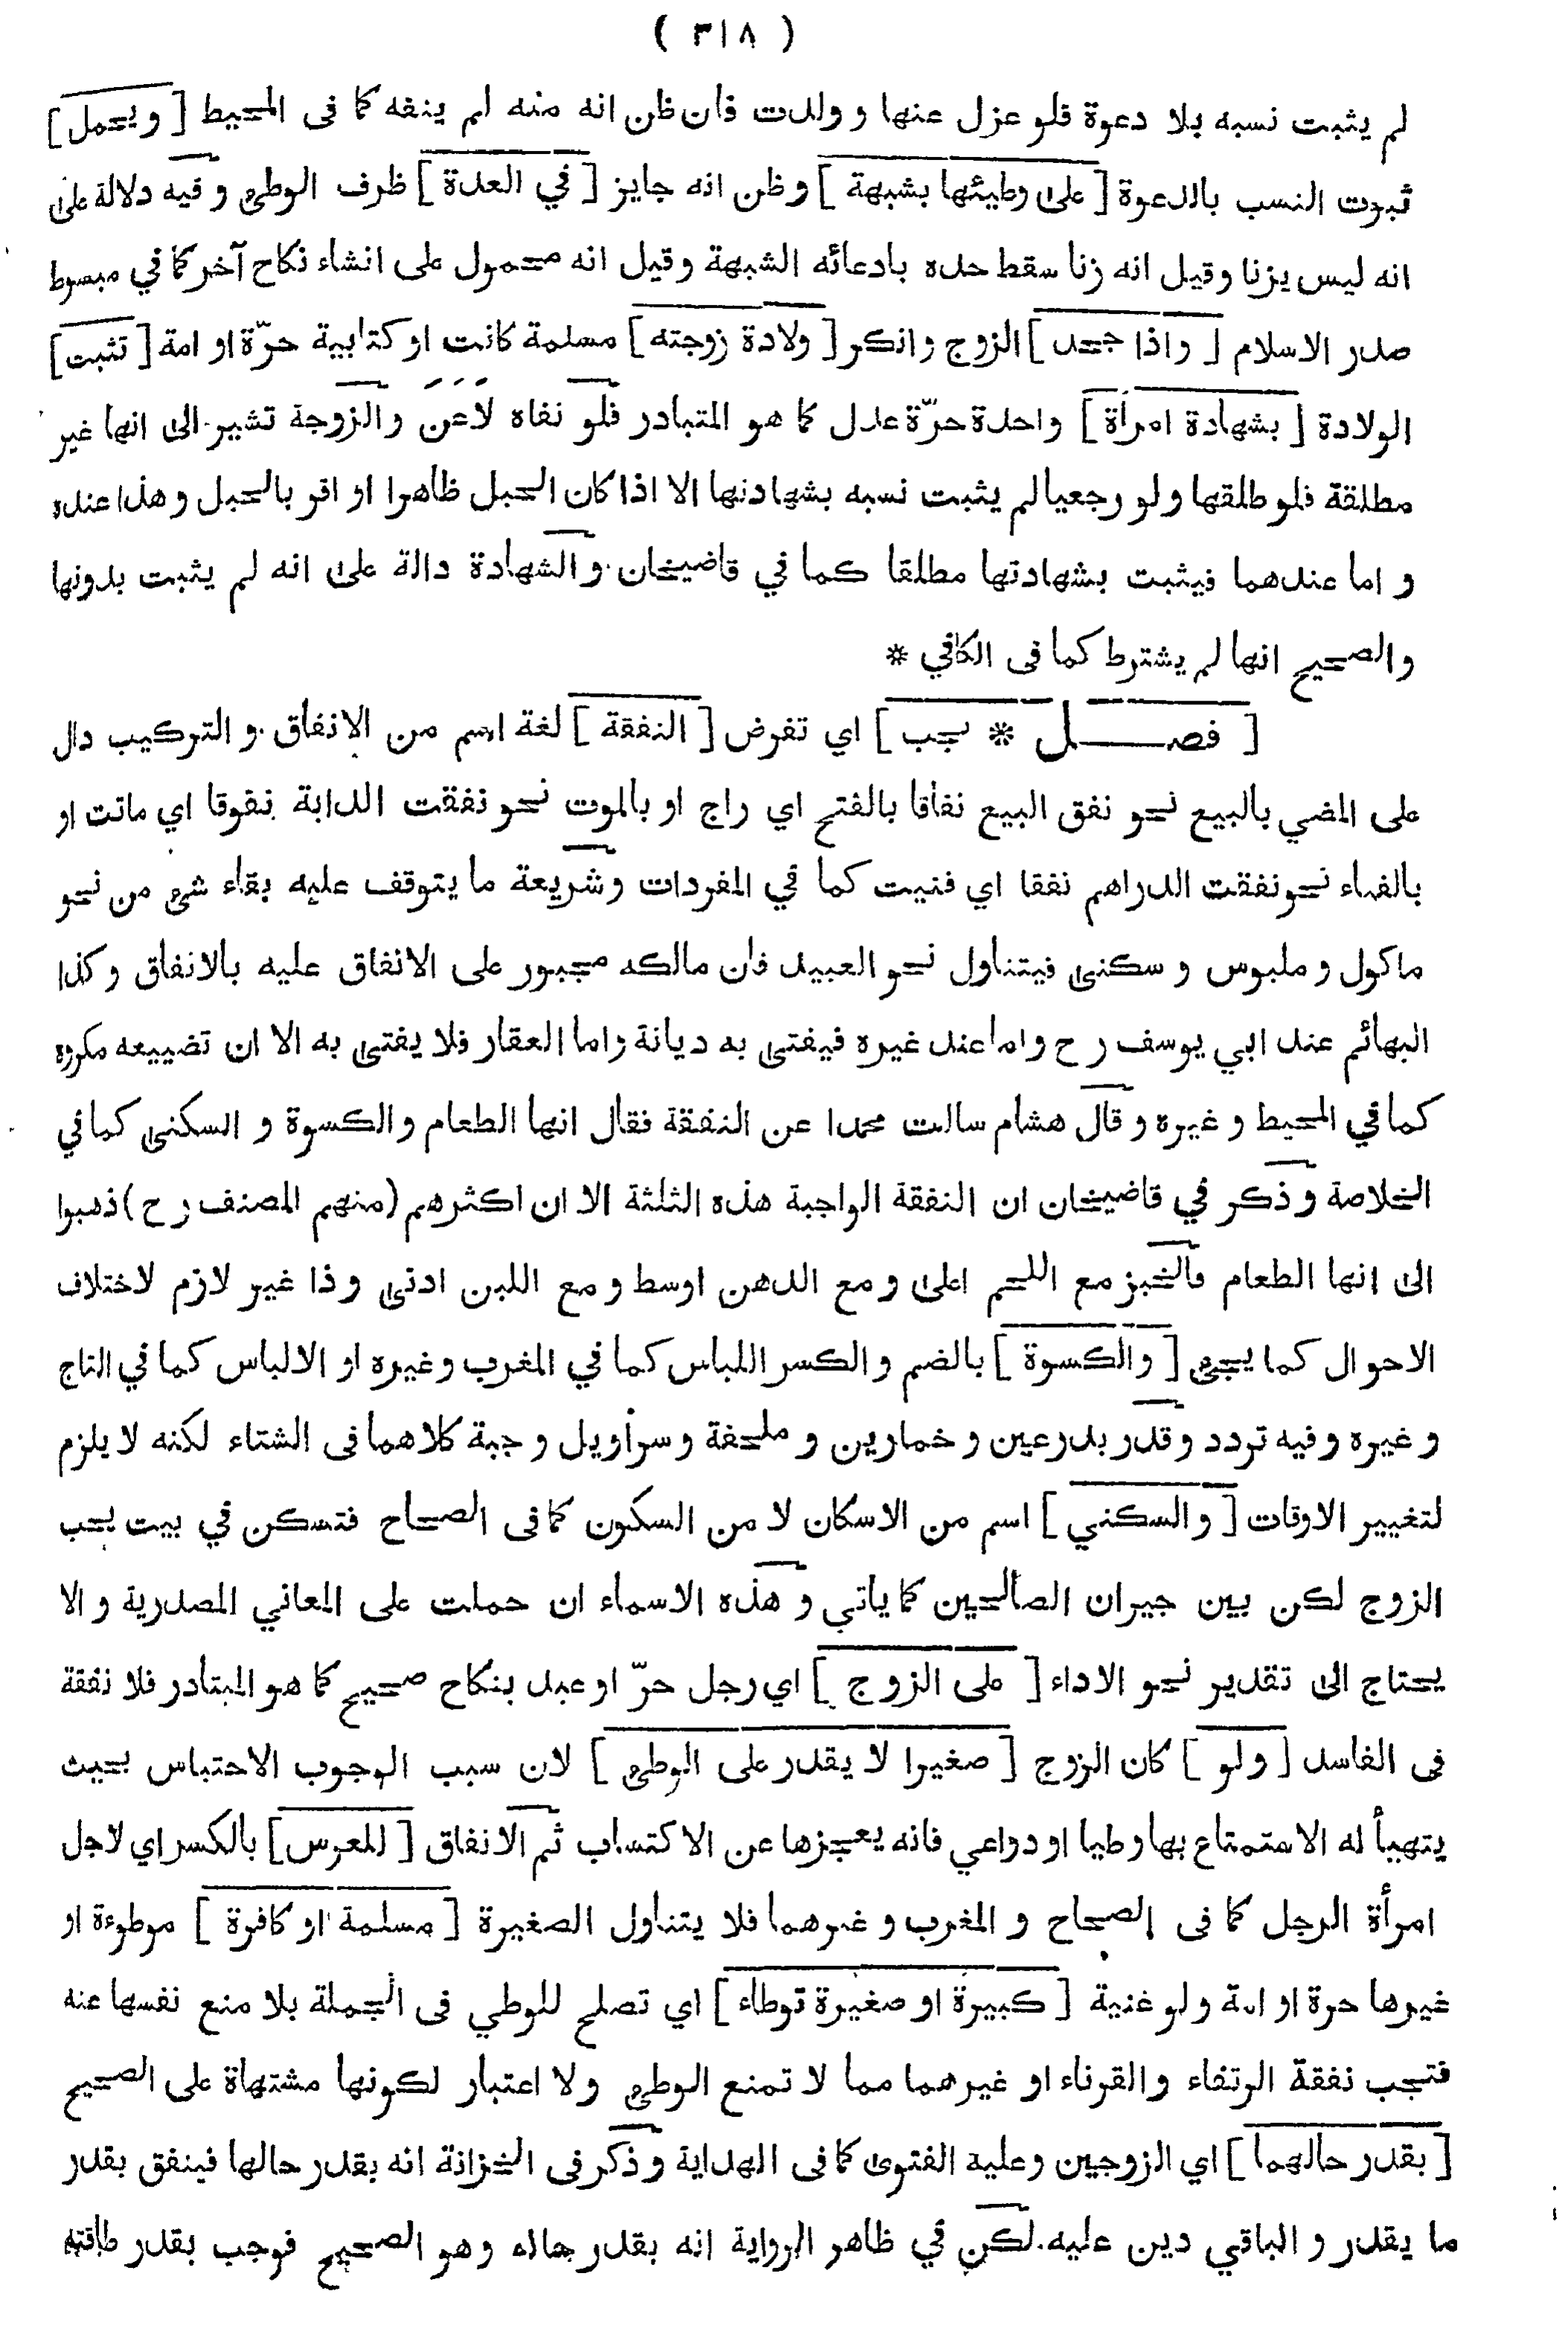 ( ٣١٨ )
لم يثبت نسبه بلا دعوة فلو عزل عنها و ولدت فان ظن انه منه لم ينفه كما فى المحيط [ و يحمل ]
ثبوت النسب بالدعوة [ على وطيئها بشبهة ] و ظن انه جايز [ في العدة ] ظرف الوطئ و فيه دلالة على
انه ليس بزنا و قيل انه زنا سقط حده بادعائه الشبهة و قيل انه محمول على انشاء نكاح آخر كما في مبسوط
صدر الاسلام [ و اذا جحد ] الزوج و انكر [ ولادة زوجته ] مسلمة كانت او كتابية حرّة او امة [ تثبت ]
الولادة [ بشهادة امرأة ] واحدة حرّة عدل كما هو المتبادر فلو نفاه لَاعَنَ و الزوجة تشير الى انها غير
مطلقة فلو طلقها و لو رجعيا لم يثبت نسبه بشهادتها الا اذا كان الحبل ظاهرا او اقر بالحبل و هذا عنده
و اما عندهما فيثبت بشهادتها مطلقا كما في قاضيخان و الشهادة دالة على انه لم يثبت بدونها
و الصحيح انها لم يشترط كما فى الكافي *
[ فصـــل * يجب ] اي تفرض [ النفقة ] لغة اسم من الانفاق و التركيب دال
على المضي بالبيع نحو نفق البيع نفاقا بالفتح اي راج او بالموت نحو نفقت الدابة نفوقا اي ماتت او
بالفناء نحو نفقت الدراهم نفقا اي فنيت كما في المفردات و شريعة ما يتوقف عليه بقاء شئ من نحو
ماكول و ملبوس و سكنى فيتناول نحو العبيد فان مالكه مجبور على الانفاق عليه بالانفاق و كذا
البهائم عند ابي يوسف ر ح و اما عند غيره فيفتى به ديانة و اما العقار فلا يفتى به الا ان تضييعه مكروه
كما في المحيط و غيره و قال هشام سالت محمدا عن النفقة فقال انها الطعام و الكسوة و السكنى كما في
الخلاصة و ذكر في قاضيخان ان النفقة الواجبة هذه الثلثة الا ان اكثرهم (منهم المصنف ر ح) ذهبوا
الى انها الطعام فالخبز مع اللحم اعلى و مع الدهن اوسط و مع اللبن ادنى و ذا غير لازم لاختلاف
الاحوال كما يجئ [ و الكسوة ] بالضم و الكسر اللباس كما في المغرب و غيره او الالباس كما في التاج
و غيره و فيه تردد و قدر بدرعين و خمارين و ملحفة و سراويل و جبة كلاهما فى الشتاء لكنه لا يلزم
لتغيير الاوقات [ و السكني ] اسم من الاسكان لا من السكون كما فى الصحاح فتسكن في بيت يحب
الزوج لكن بين جيران الصالحين كما ياتي و هذه الاسماء ان حملت على المعاني المصدرية و الا
يحتاج الى تقدير نحو الاداء [ على الزوج ] اي رجل حرّ او عبد بنكاح صحيح كما هو المتبادر فلا نفقة
فى الفاسد [ ولو ] كان الزوج [ صغيرا لا يقدر على الوطئ ] لان سبب الوجوب الاحتباس بحيث
يتهيأ له الاستمتاع بها وطيا او دواعي فانه يعجزها عن الاكتساب ثم الانفاق [ للعرس ] بالكسر اي لاجل
امرأة الرجل كما فى الصحاح و المغرب و غيرهما فلا يتناول الصغيرة [ مسلمة او كافرة ] موطوءة او
غيرها حرة او امة و لو غنية [ كبيرة او صغيرة توطاء ] اي تصلح للوطي فى الجملة بلا منع نفسها عنه
فتجب نفقة الرتقاء و القرناء او غيرهما مما لا تمنع الوطئ و لا اعتبار لكونها مشتهاة على الصحيح
[ بقدر حالهما ] اي الزوجين و عليه الفتوى كما فى الهداية و ذكر فى الخزانة انه بقدر حالها فينفق بقدر
ما يقدر و الباقي دين عليه لكن في ظاهر الرواية انه بقدر حاله و هو الصحيح فوجب بقدر طاقته